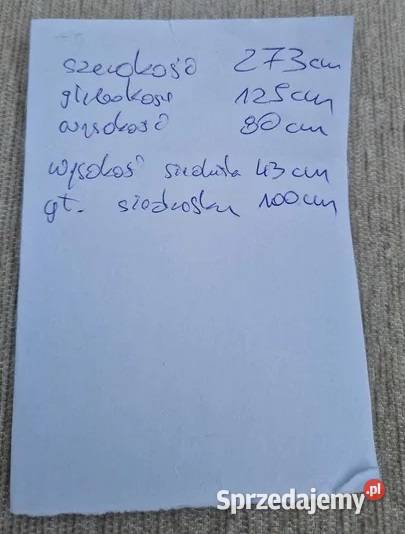 szerokość 273cm
głębokość 125cm
wysokość 80cm
wysokość siedziska 43cm
gł. siedziska 100cm
Sprzedajemy.pl